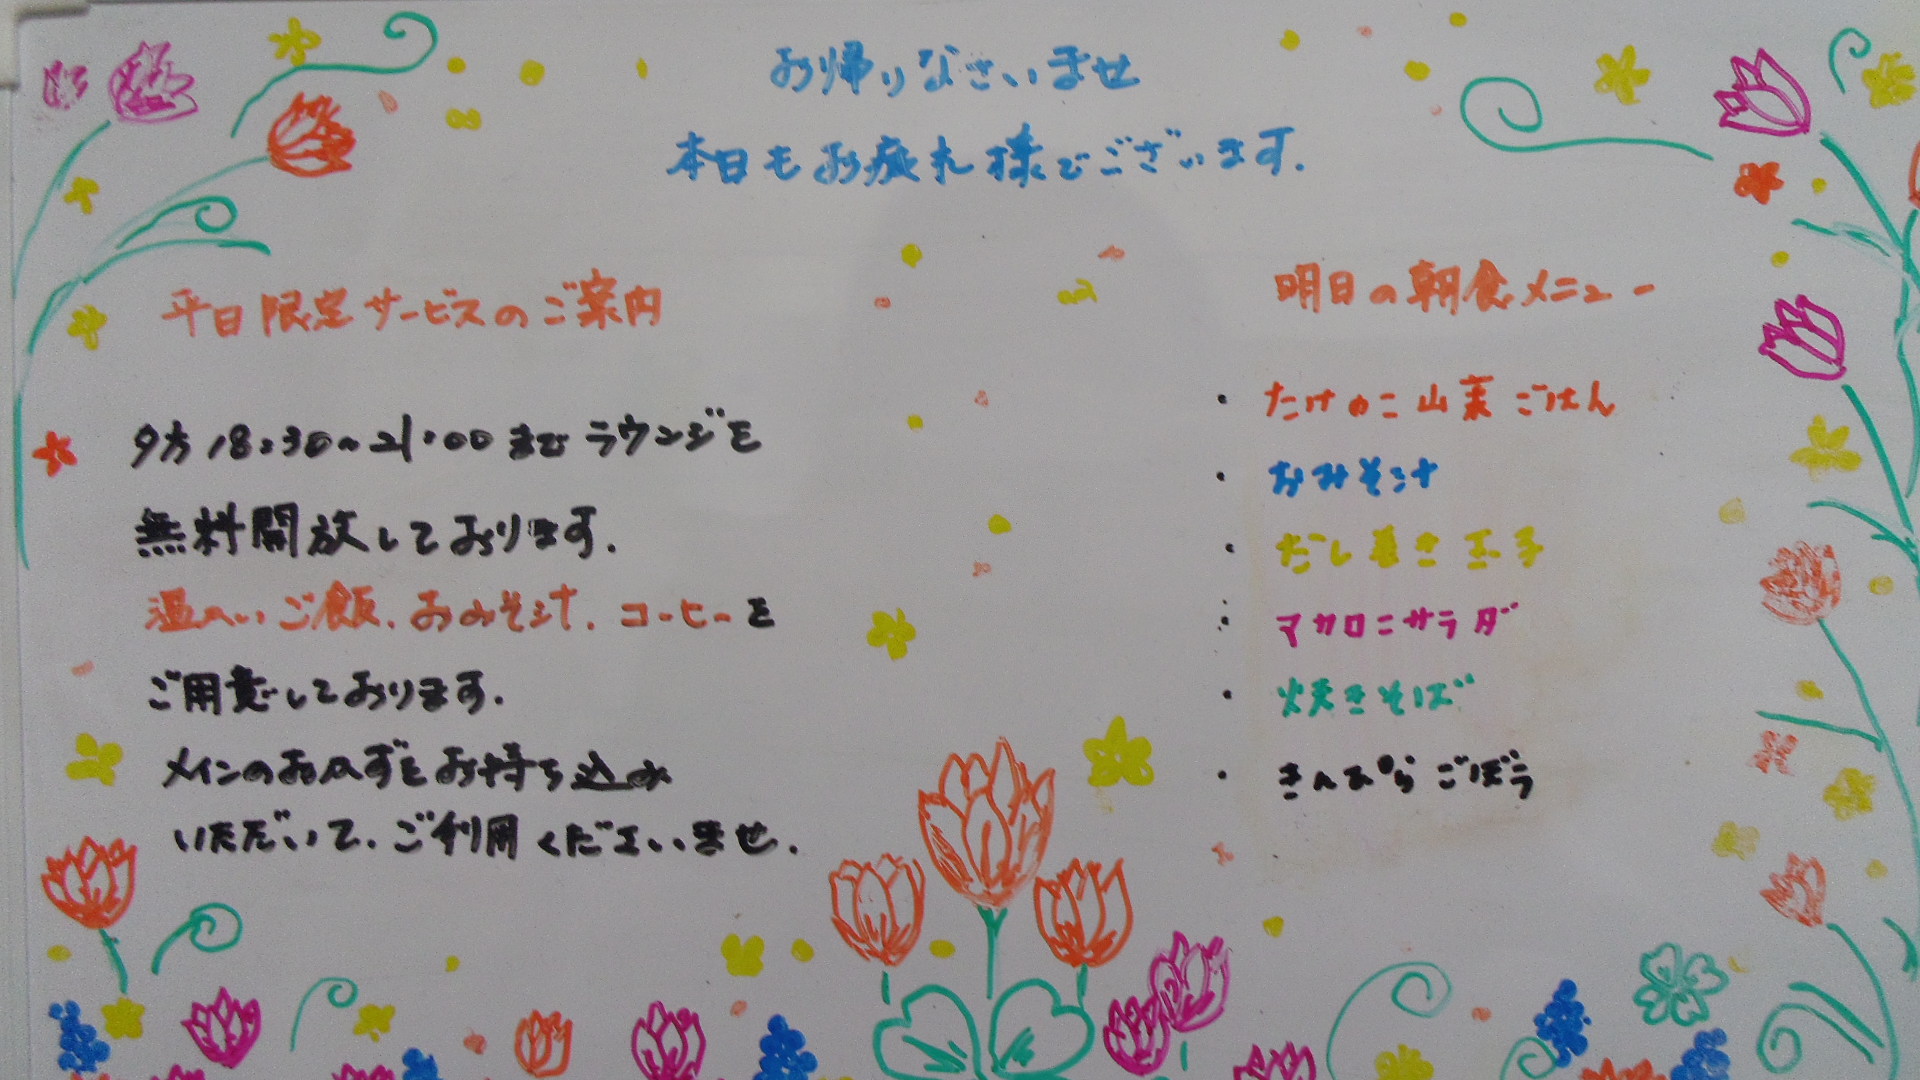 お帰りなさいませ
本日もお疲れ様でございます.
平日限定サービスのご案内
夕方18:30~21:00までラウンジを
無料開放しております.
温かいご飯.おみそ汁.コーヒーを
ご用意しております.
メインのおかずをお持ち込み
いただいて.ご利用くださいませ.
明日の朝食メニュー
・たけのこ山菜ごはん
・おみそ汁
・だし巻き玉子
・マカロニサラダ
・焼きそば
・きんぴらごぼう